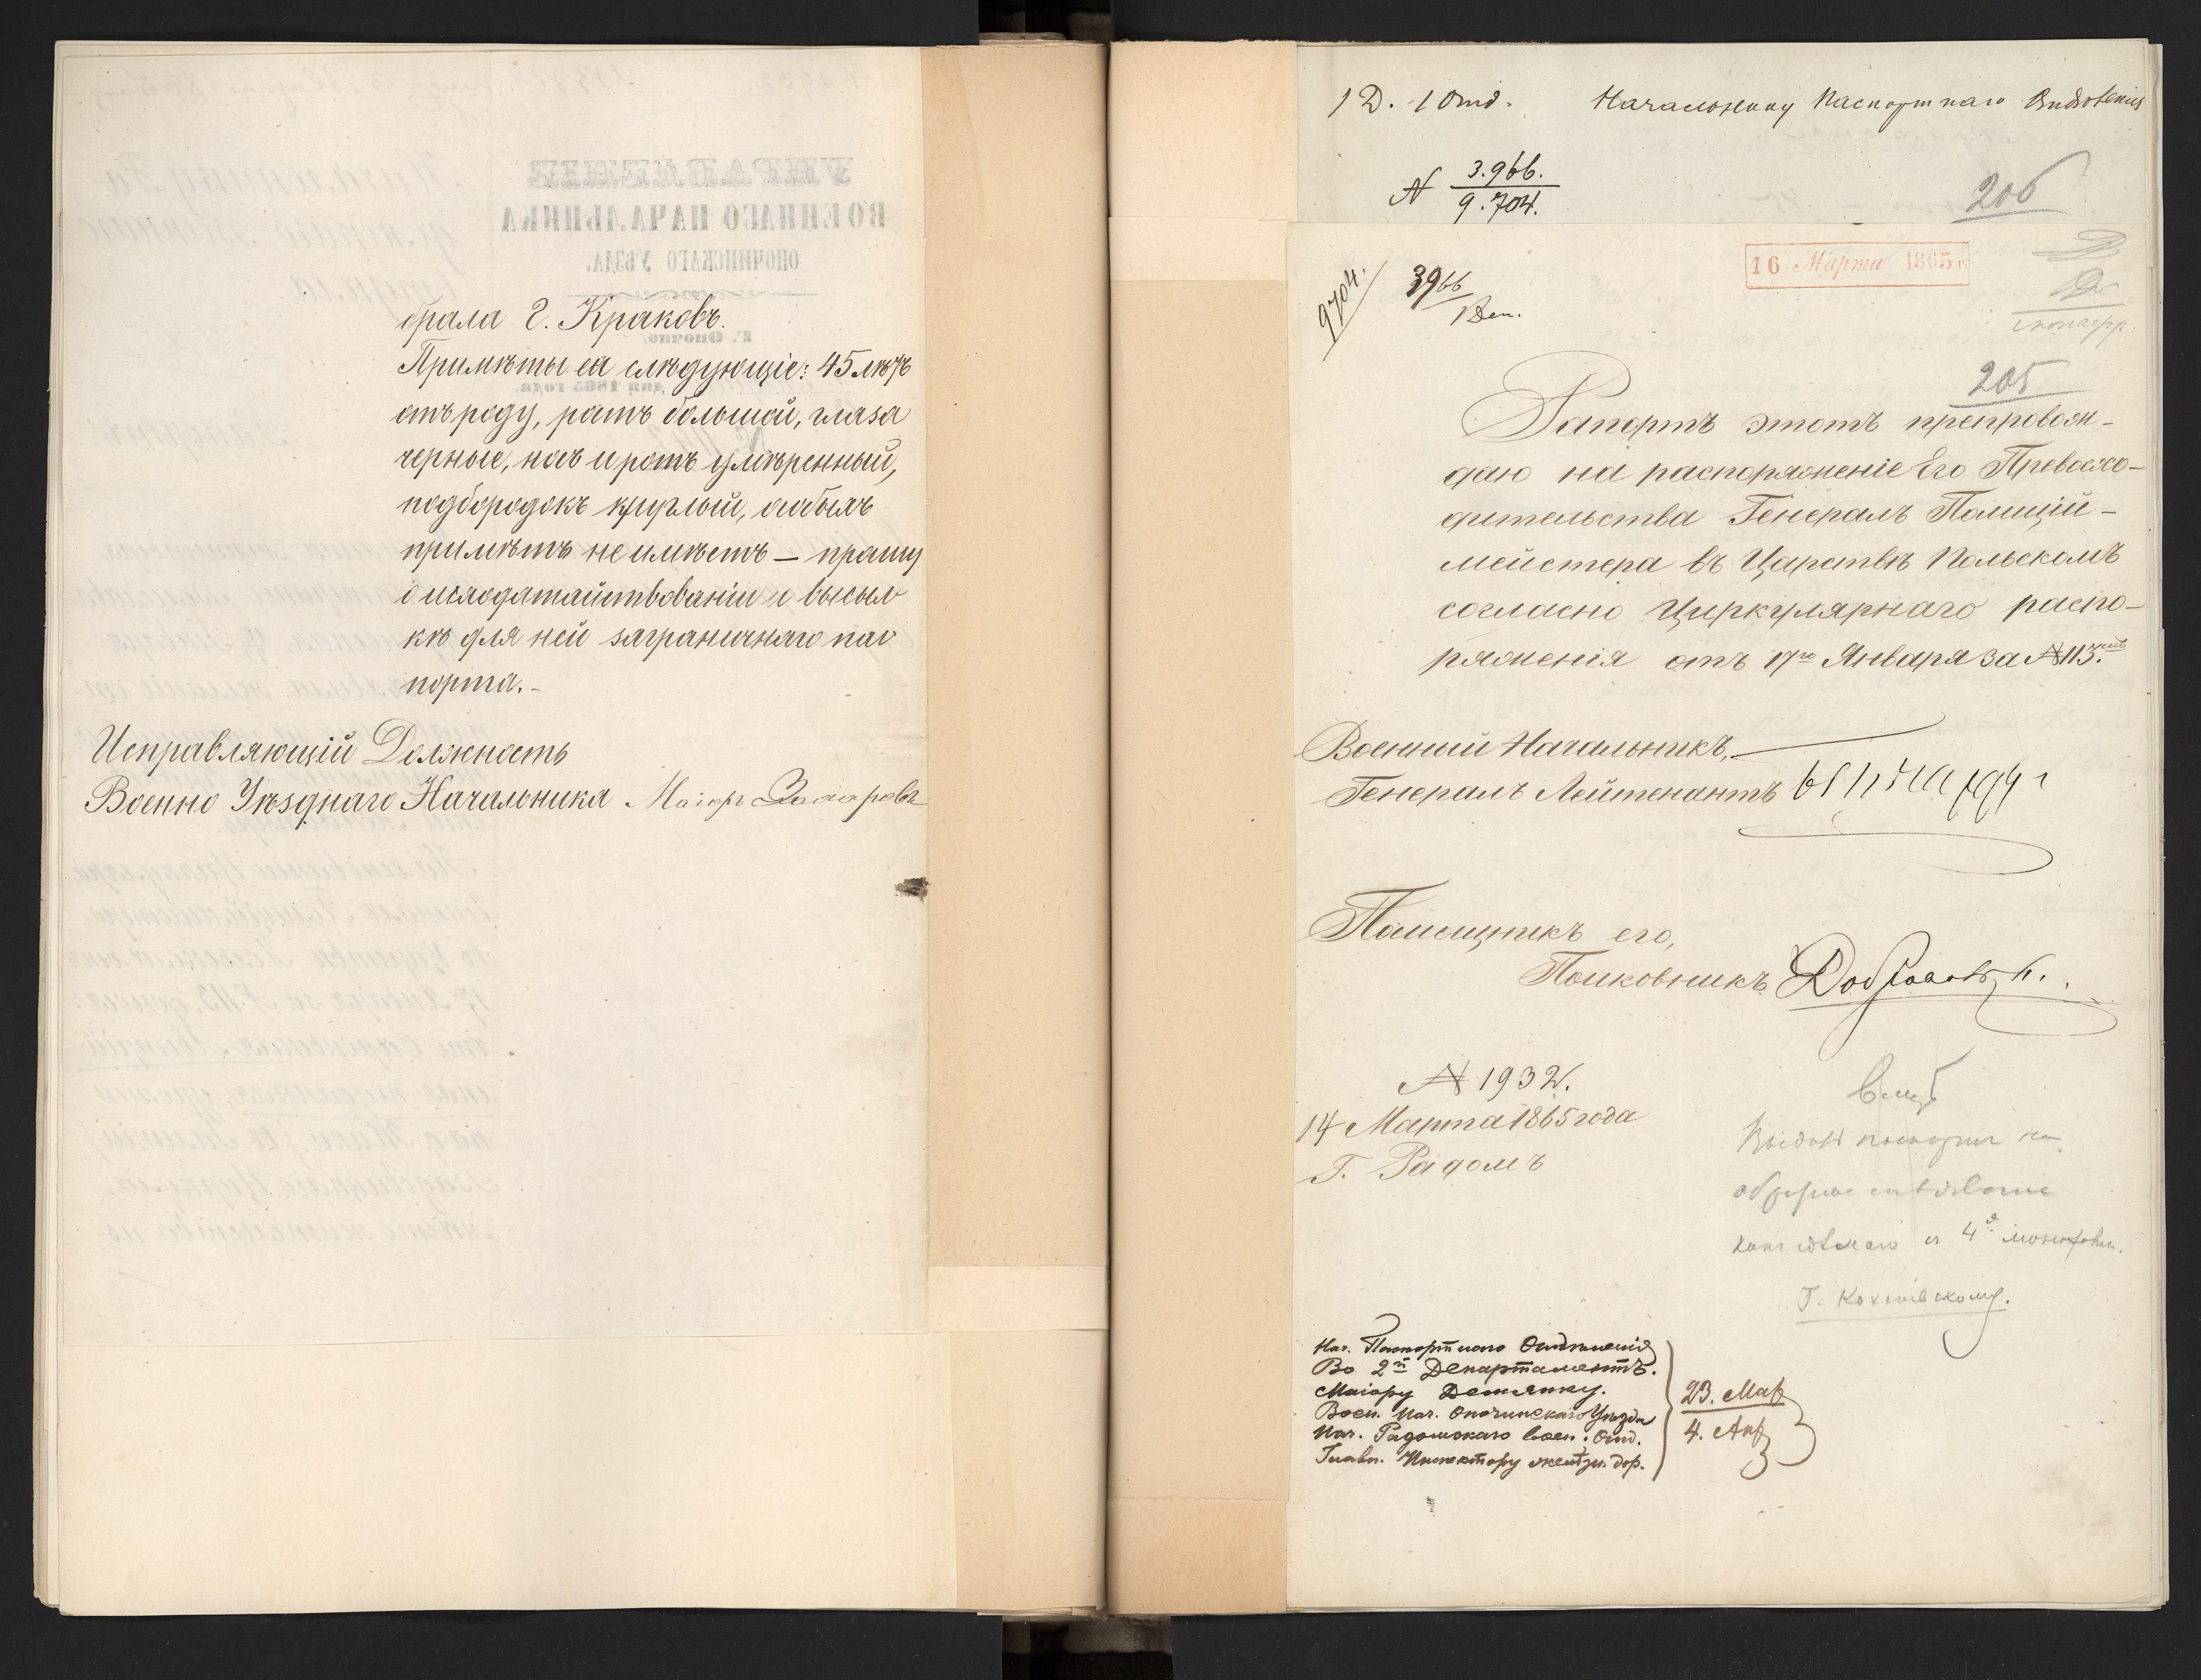 брала г. Краковъ.
Примѣты ея слѣдующіе: 45 лѣтъ
отъ роду, ростъ большой, глаза
черные, носъ и ротъ умѣренный,
подбородокъ круглый, особыхъ
примѣтъ не имѣетъ — прошу
о исходатайствованіи и высыл
кѣ для ней заграничнаго пас
порта.-
Исправляющій Должность
Военно Уѣзднаго Начальника Маіоръ
УПРАВЛЕНІЕ
ВОЕННАГО НАЧАЛЬНИКА
ОПОЧИНСКАГО УѢЗДА.
г. Опочно.
дня 1865 года.
1 Д. 1 Отд. Начальнику Паспортнаго
N 3.966.
9.704.
206
16 Марта 1865 г.
9704. 3966
1 Деп.
205
Рапортъ этотъ препровож-
даю на распоряженіе Его Превосхо-
дительства Генералъ Полицій-
мейстера въ Царствѣ Польскомъ
согласно Циркулярнаго распо-
ряженія отъ 17го Января за N 113.
Военный Начальникъ,
Генералъ Лейтенантъ
Помощникъ его,
Полковникъ
N 1932.
14 Марта 1865 года
Г. Радомъ
4
Нач. Паспортнаго Отдѣленія
Во 2й Департаментъ.
Маіору
Воен. Нач. Опочинскаго Уѣзда
Нач. Радомскаго воен. Отд.
Главн. Инспектору желѣзн. дор.
23. Мар
4. Апр